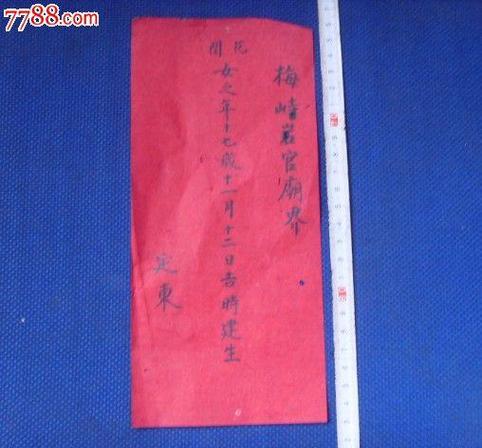 7788.com
梅崎岩官廟界
花開
女之年十七歲十一月十二日吉時建生
定東